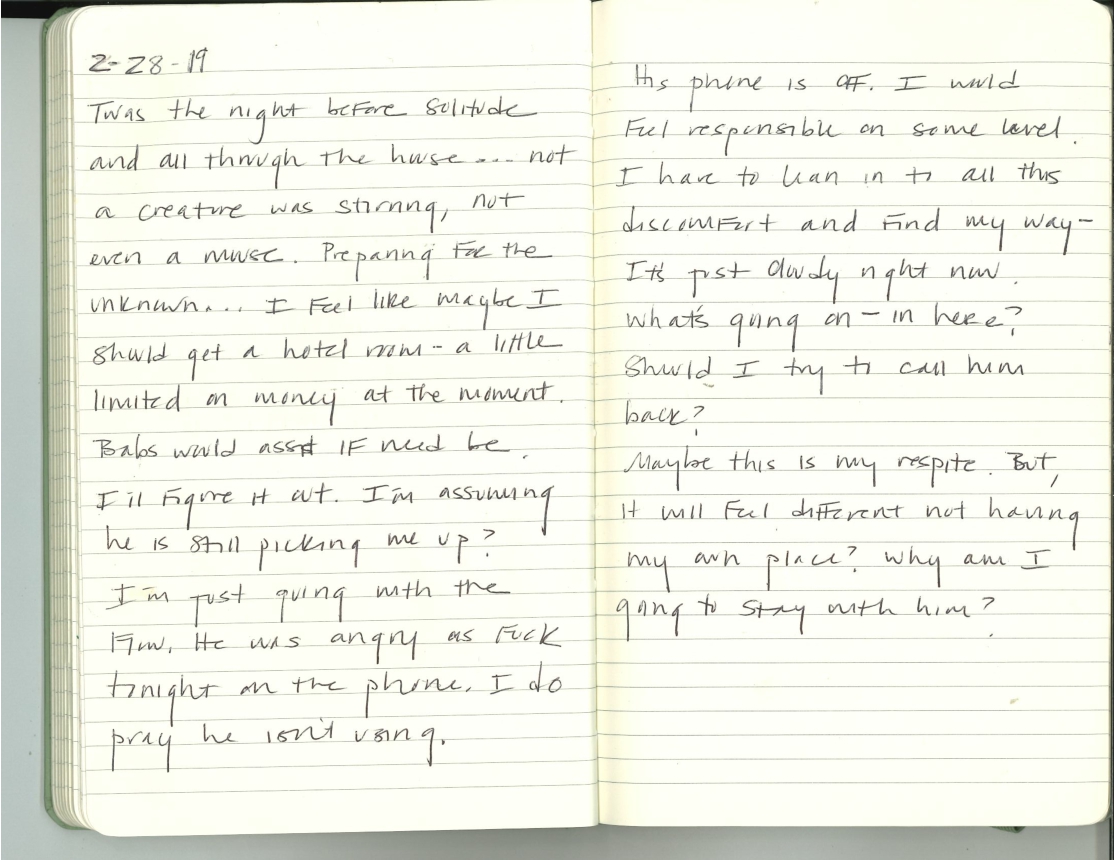 2-28-19
Twas the night before Solitude
and all through the house... not
a creature was stirring, not
even a mouse. Preparing for the
unknown... I feel like maybe I
should get a hotel room - a little
limited on money at the moment.
Babs would assist if need be.
I'll figure it out. I'm assuming
he is still picking me up?
I'm just going with the
flow. He was angry as fuck
tonight on the phone. I do
pray he isn't using.
His phone is off. I would
feel responsible on some level.
I have to lean in to all this
discomfort and find my way -
It's just cloudy right now.
What's going on - in here?
Should I try to call him
back?
Maybe this is my respite. But,
it will feel different not having
my own place? Why am I
going to stay with him?